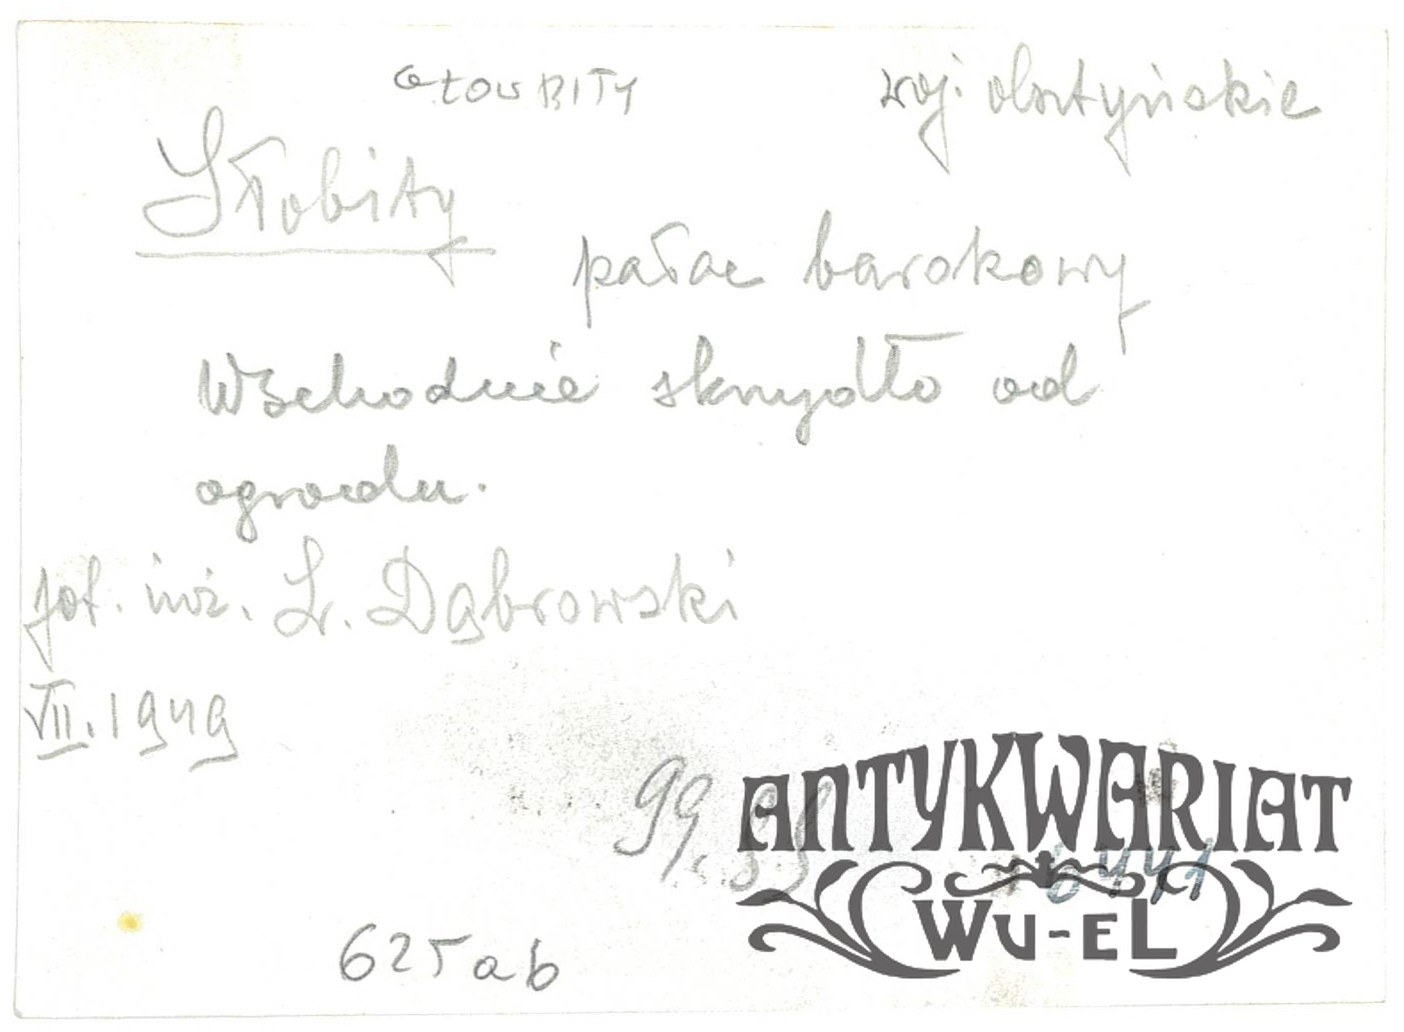 GŁOWBITY woj. olsztyńskie
Słobity
pałac barokowy
Wschodnie skrzydło od
ogrodu.
fot. inż. Dąbrowski
VII. 1949
ANTYKWARIAT
WU-EL
625ab